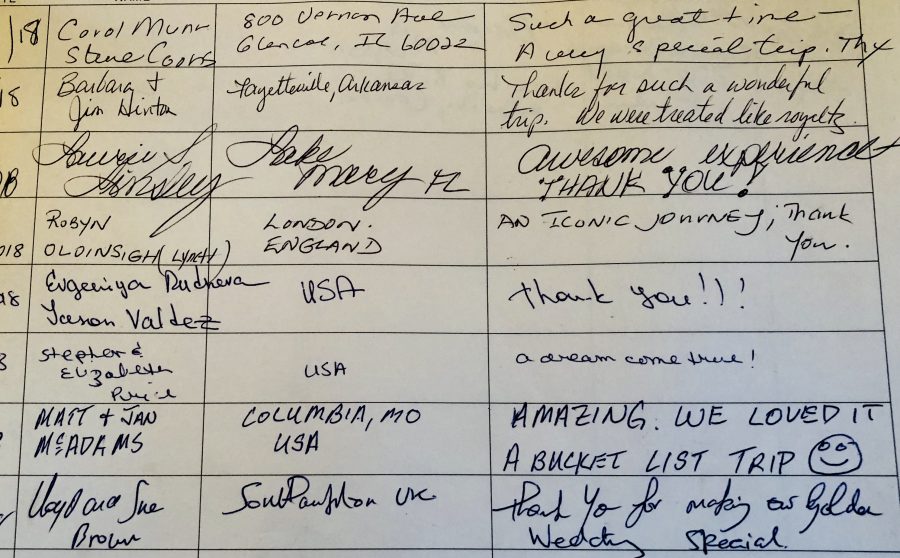 /18 Carol Munn 800 Vernon Ave Such a great time –
Steve Coons Glencoe, IL 60022 A very special trip. Thx
18 Barbara + Fayetteville, Arkansas Thanks for such a wonderful
Jim Hinton trip. We were treated like royalty.
Laurie S. Lake Awesome experience
Hinsley Mary FL THANK YOU!
ROBYN LONDON. AN ICONIC JOURNEY; Thank
018 OLDINSIGH (LYNCH) ENGLAND You.
18 Evgeniya Rudneva USA Thank you!!!
Jason Valdez
Stephen & USA a dream come true!
Elizabeth
Price
MATT + JAN COLUMBIA, MO AMAZING. WE LOVED IT
McADAMS USA A BUCKET LIST TRIP
Lloyd and Sue Southampton UK Thank You for making our Golden
Brown Wedding Special.